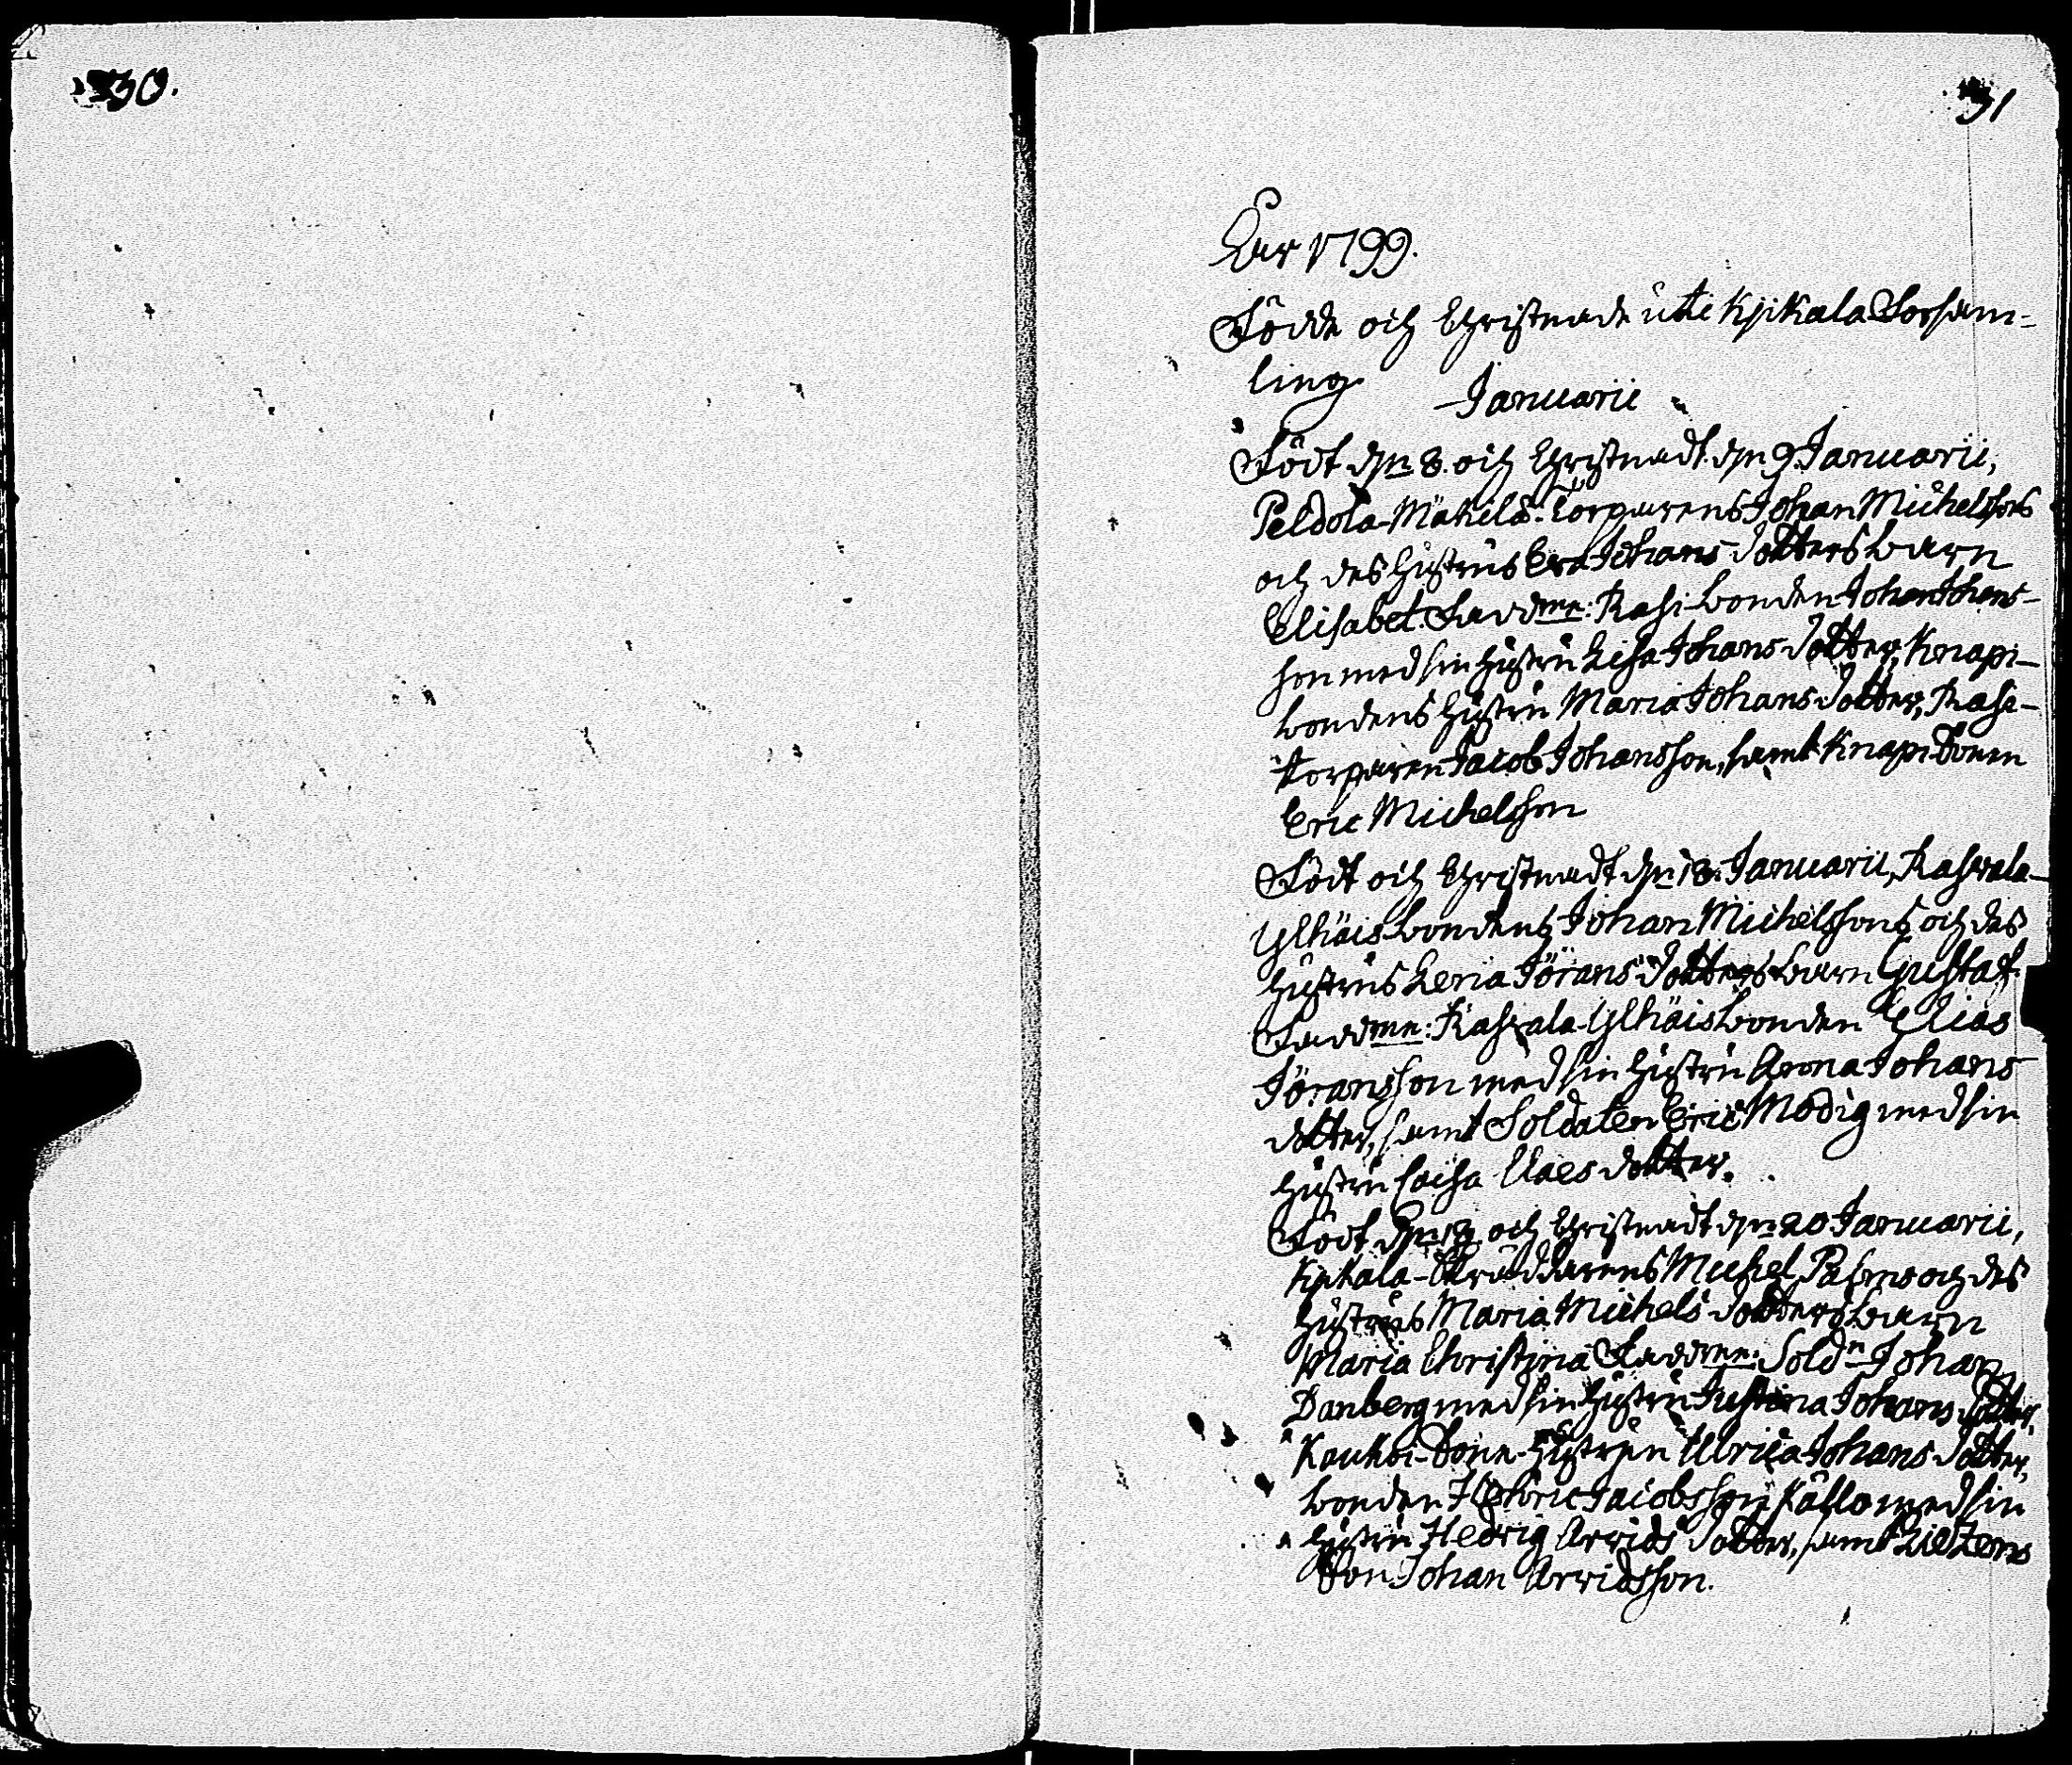 30.
31
Åhr 1799.
Födde och Christnade uti Kjikala Forsam-
ling
Januarii
Född dn 8. och Christnadt dn 9. Januarii,
Peldola-Mäkilä-Torparens Johan Michelssons
och des Hustrus Eva Johans Dotters barn
Elisabet. Faddrne: Rasi-bonden Johan Johans-
son med sin Hustru Lisa Johans Dotter, Knapi-
bondens Hustru Maria Johans Dotter, Rasi-
torparen Jacob Johansson, samt Knapi Sonen
Eric Michelsson
Född och Christnadt dn 18. Januarii,
Ylhäisbondens Johan Michelssons och des
Hustrus Lena Jörans Dotters barn Gustaf.
Faddrne: Ylhäisbonden Elias
Jöransson med sin Hustru Anna Johans
dotter, samt Soldaten Eric Modig med sin
Hustru Caisa Claes dotter.
Född och Christnadt dn 20 Januarii,
Kjikala-Skräddarens Michel och des
Hustrus Maria Michels Dotters barn
Maria Christina Faddrne: Soldn Johan
Danberg med sin Hustru Justina Johans Dotter,
Sone-Hustrun Ulrica Johans Dotter,
bonden Henric Jacobsson med sin
Hustru Hedvig Arvids Dotter, samt
Son Johan Arvidsson.